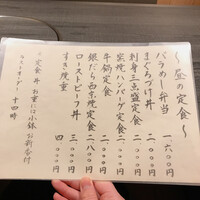 〜昼の定食〜
バラめし弁当 一、六〇〇円
まぐろづけ丼 二、〇〇〇円
刺身三点盛定食 二、〇〇〇円
窯焼ハンバーグ定食 二、〇〇〇円
牛鍋定食 二、〇〇〇円
銀だら西京焼定食 二、八〇〇円
ローストビーフ丼 三、〇〇〇円
すき焼重 四、〇〇〇円
※定食、丼、お重に小鉢、お新香付
ラストオーダー 十四時